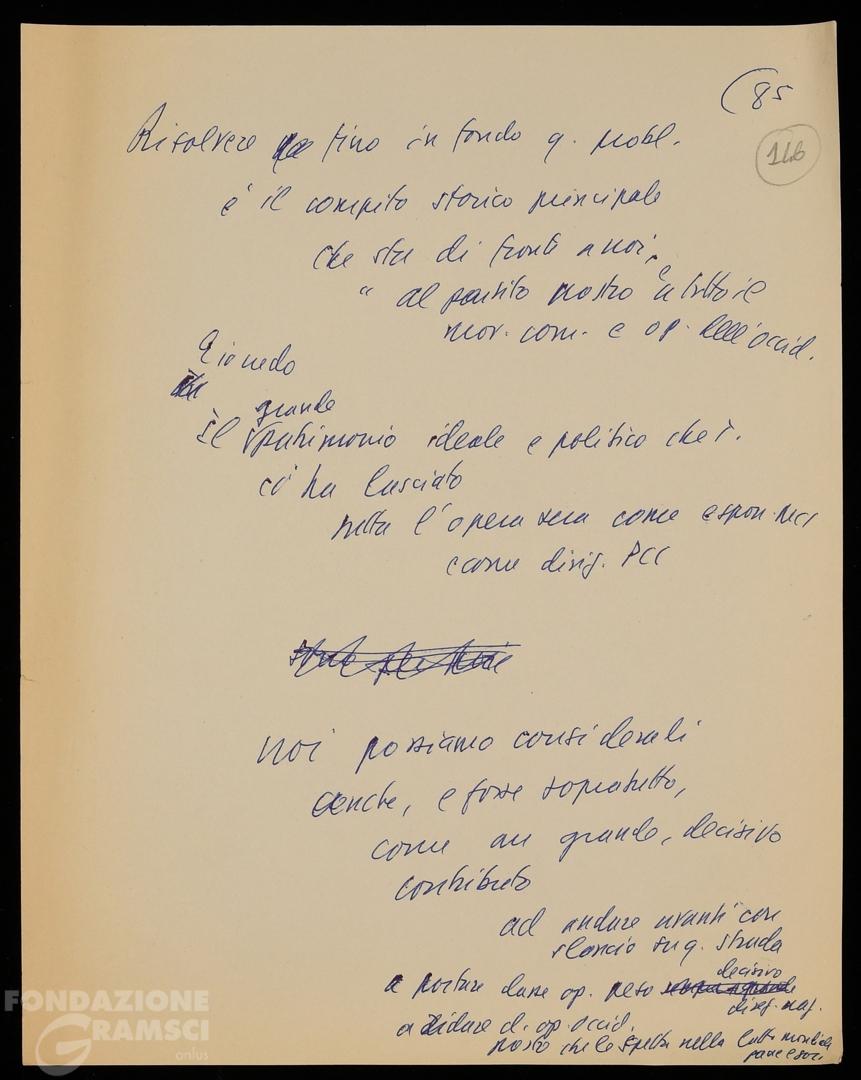 (85
146
Risolvere fino in fondo q. probl.
è il compito storico principale
che sta di fronte a noi,
" al partito nostro e a tutto il
mov. com. e op. dell'occid.
Q
grande
il patrimonio ideale e politico che
ci ha lasciato
l'opera sua come espon.
e come dirig. PCI
noi possiamo considerarli
anche, e forse sopratutto,
come un grande, decisivo
contributo
ad andare avanti con
slancio su q. strada
decisivo
a portare classe op. peso
a ridare cl. op. occid.
posto che le spetta nella lotta mondiale
pace e soc.
FONDAZIONE
GRAMSCI
onlus